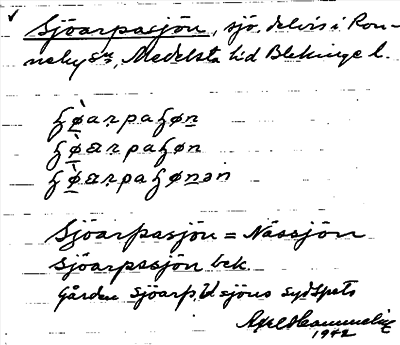 Sjöarpasjön, sjö, delvis i Ron-
neby sn, Medelsta hd Blekinge l.
ɧø̀arpaɧøn
ɧø̀arpaɧøn
ɧø̀arpaɧønən
Sjöarpasjön = Nässjön
Sjöarpasjön bek.
Gården Sjöarp, vid sjöns sydspets
1942